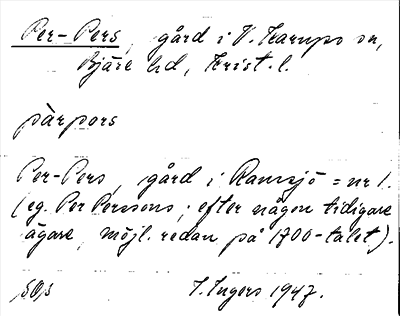 Per-Pers, gård i V. Karups sn,
Bjäre hd, Krist. l.
pàrpors
Per-Pers, gård i Ramsjö = nr 1.
(eg. Per Perssons; efter någon tidigare
ägare, möjl. redan på 1700-talet).
I. Ingers 1947.